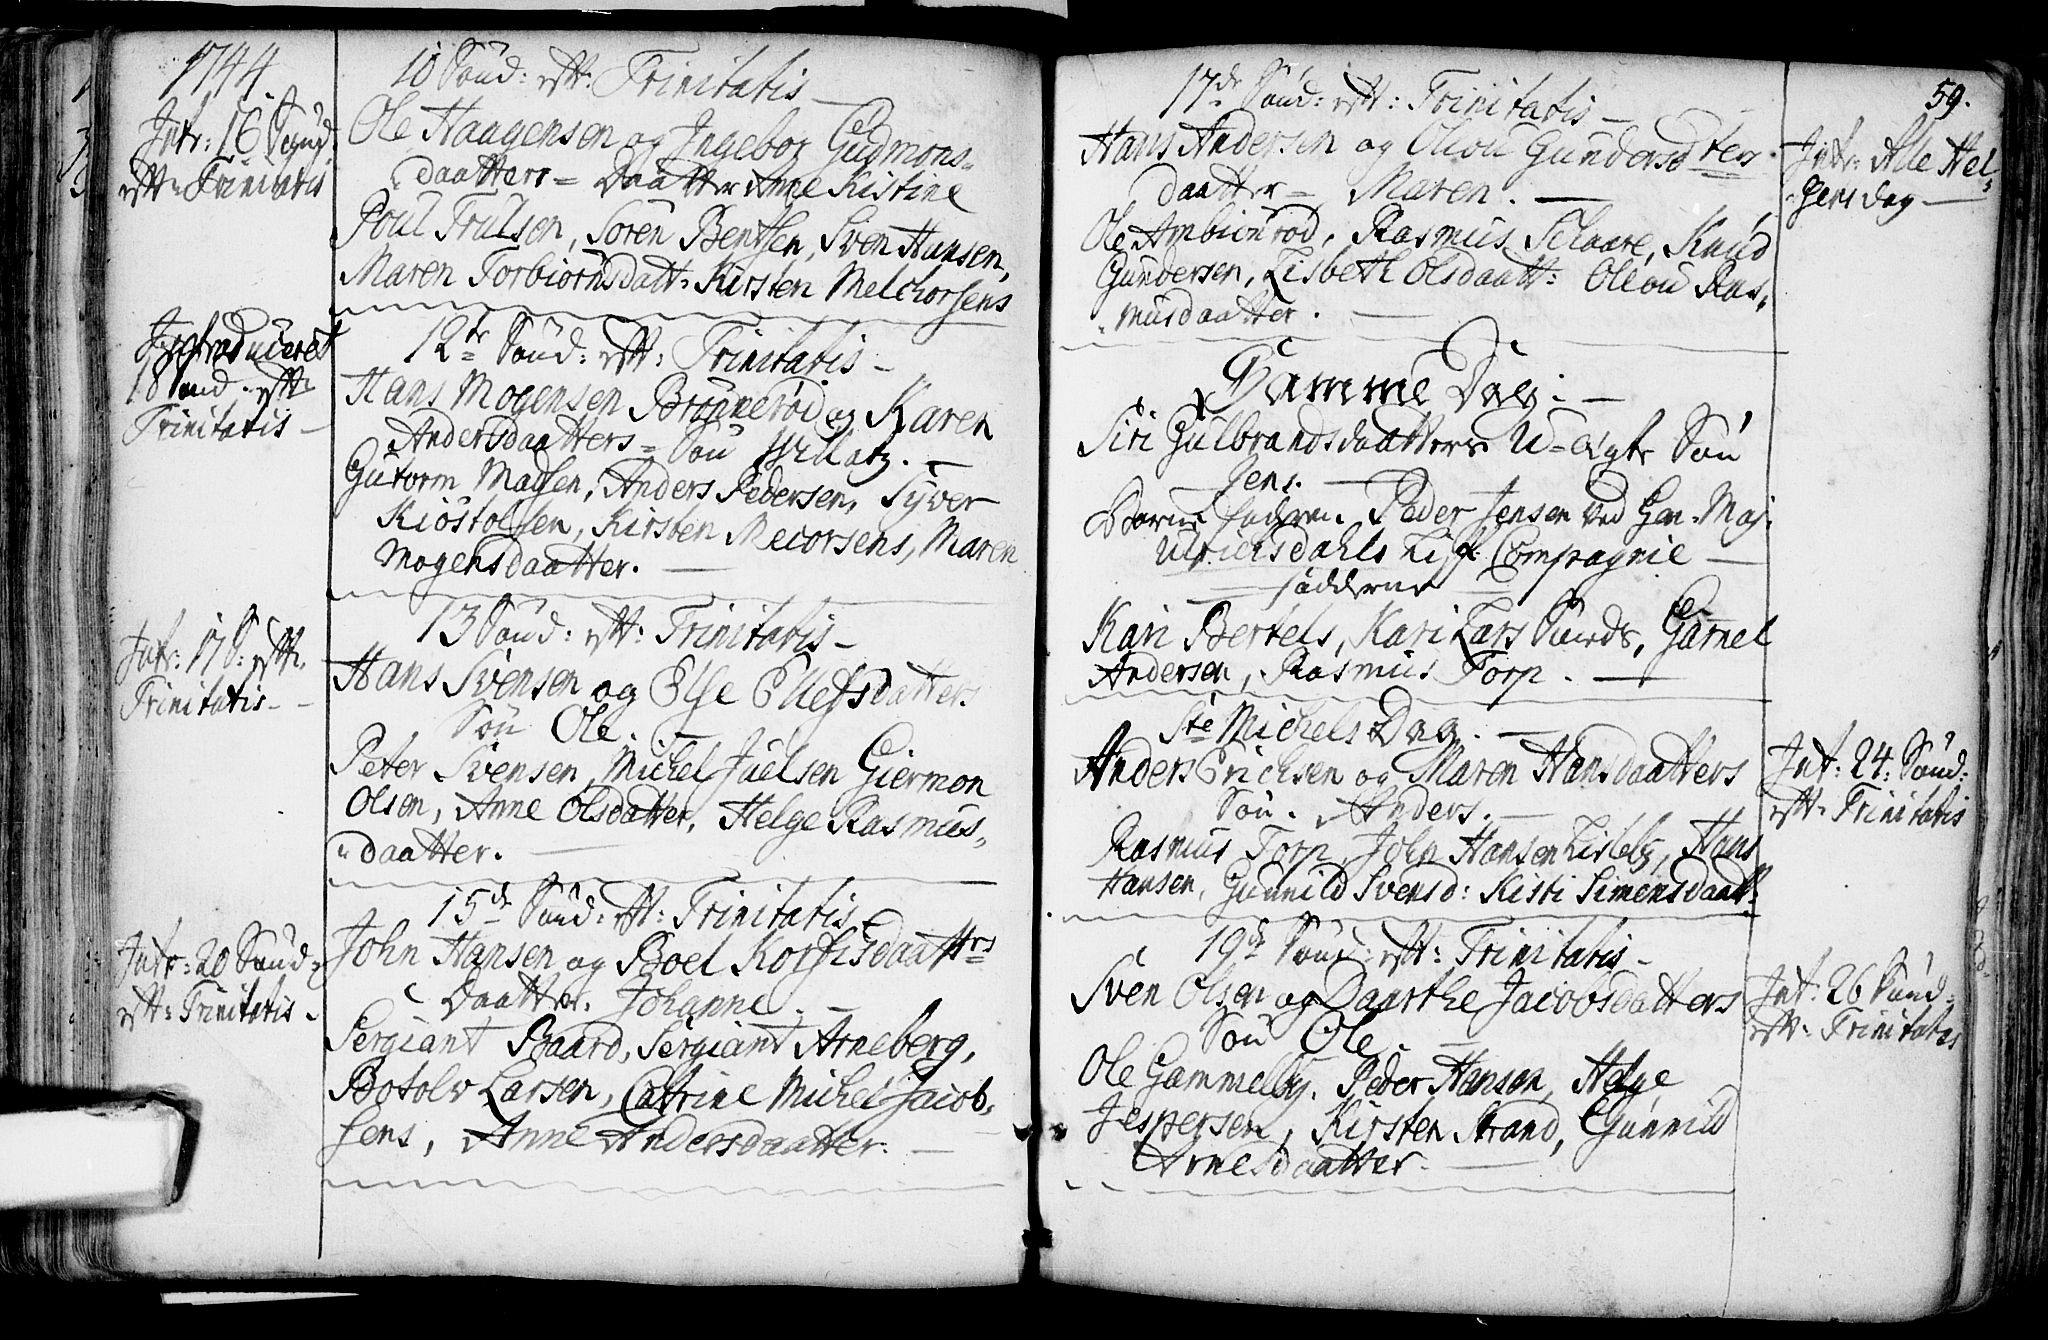 1744
Intr: 16 Sønd:
eftr: Trinitatis
10 Sønd: eftr: Trinitatis
Ole Haagensen og Ingebor Gudmons-
daatters = Daatter Anne Kistine
Poul Trulsen, Sören Bentsen, Sven Hansen,
Maren Torbiörnsdatt: Kirsten Melchorsens
Introduceret
18 Sønd. eftr
Trinitatis
12te Sønd: eftr: Trinitatis
Hans Mogensen Brønneröd og Karen
Andersdaatters = Søn
Gutorm Madsen, Anders Pedersen, Syver
Kiöstolsen, Kirsten Mecorsens, Maren
Mogensdaatter.
Intr: 17 S: eftr.
Trinitatis
13 Sønd: eftr: Trinitatis
Hans Svensen og Else Ellefsdatters
Søn Ole.
Peter Svensen, Michel Juelsen Giermon
Olsen, Anne Olsdatter, Helge Rasmus-
daatter.
Intr: 20 Sønd:
eftr: Trinitatis
15de Sønd: eftr: Trinitatis
John Hansen og Boel Korfisdaattrs
Daatter. Johanne.
Sergiant Baard, Sergiant Arneberg,
Botolv Larsen, Catrine Michel Jacob-
sens, Anne Andersdaatter.
59.
17de Sønd: eftr: Trinitatis
Hans Andersen og Olloü Gundersdters
daatter = Maren.
Ole Ambiönröd, Rasmus Schaare, Knud
Gundersen, Lisbeth Olsdaatt: Olloü Ras-
musdaatter.
Intr: Alle Hel-
gens dag
Samme Dag:
Siri Gulbrandsdaatters U-ægte Søn
Jens.
Barne fadren. Peder Jensen ved Gen-Maj:
Ulrichsdahls Lif Compagnie
fadderne
Kari Bertels, Kari Lars Sunds, Garnel
Andersen, Rasmus Torp.
Ste Michels Dag.
Anders Erichsen og Maren Hansdaatters
Søn. Anders.
Rasmus Torp, John Hansen Lisleby, Hans
Hansen, Gunnild Svensd: Kisti Simensdaatt:
Int: 24: Sønd:
eftr: Trinitatis
19de Sønd: eftr: Trinitatis
Sven Olsen og Daarthe Jacobsdatters
Søn Ole.
Ole Gammelby. Peder Hansen, Helge
Jespersen, Kirsten Strand, Gunnild
Arnesdaatter.
Int: 26 Sønd:
eftr: Trinitatis